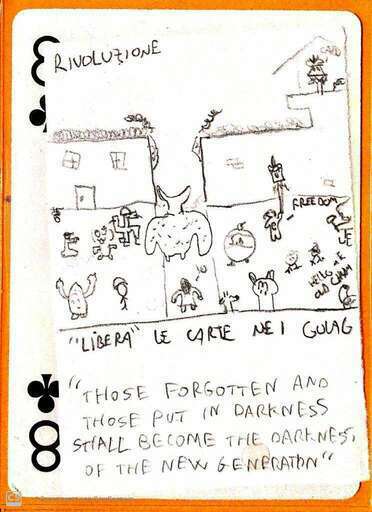 8
RIVOLUZIONE
CAPO
FREEDOM
HELLO
OLD
"LIBERA" LE CARTE NEI GULAG
8
"THOSE FORGOTTEN AND
THOSE PUT IN DARKNESS
SHALL BECOME THE DARKNESS,
OF THE NEW GENERATION"